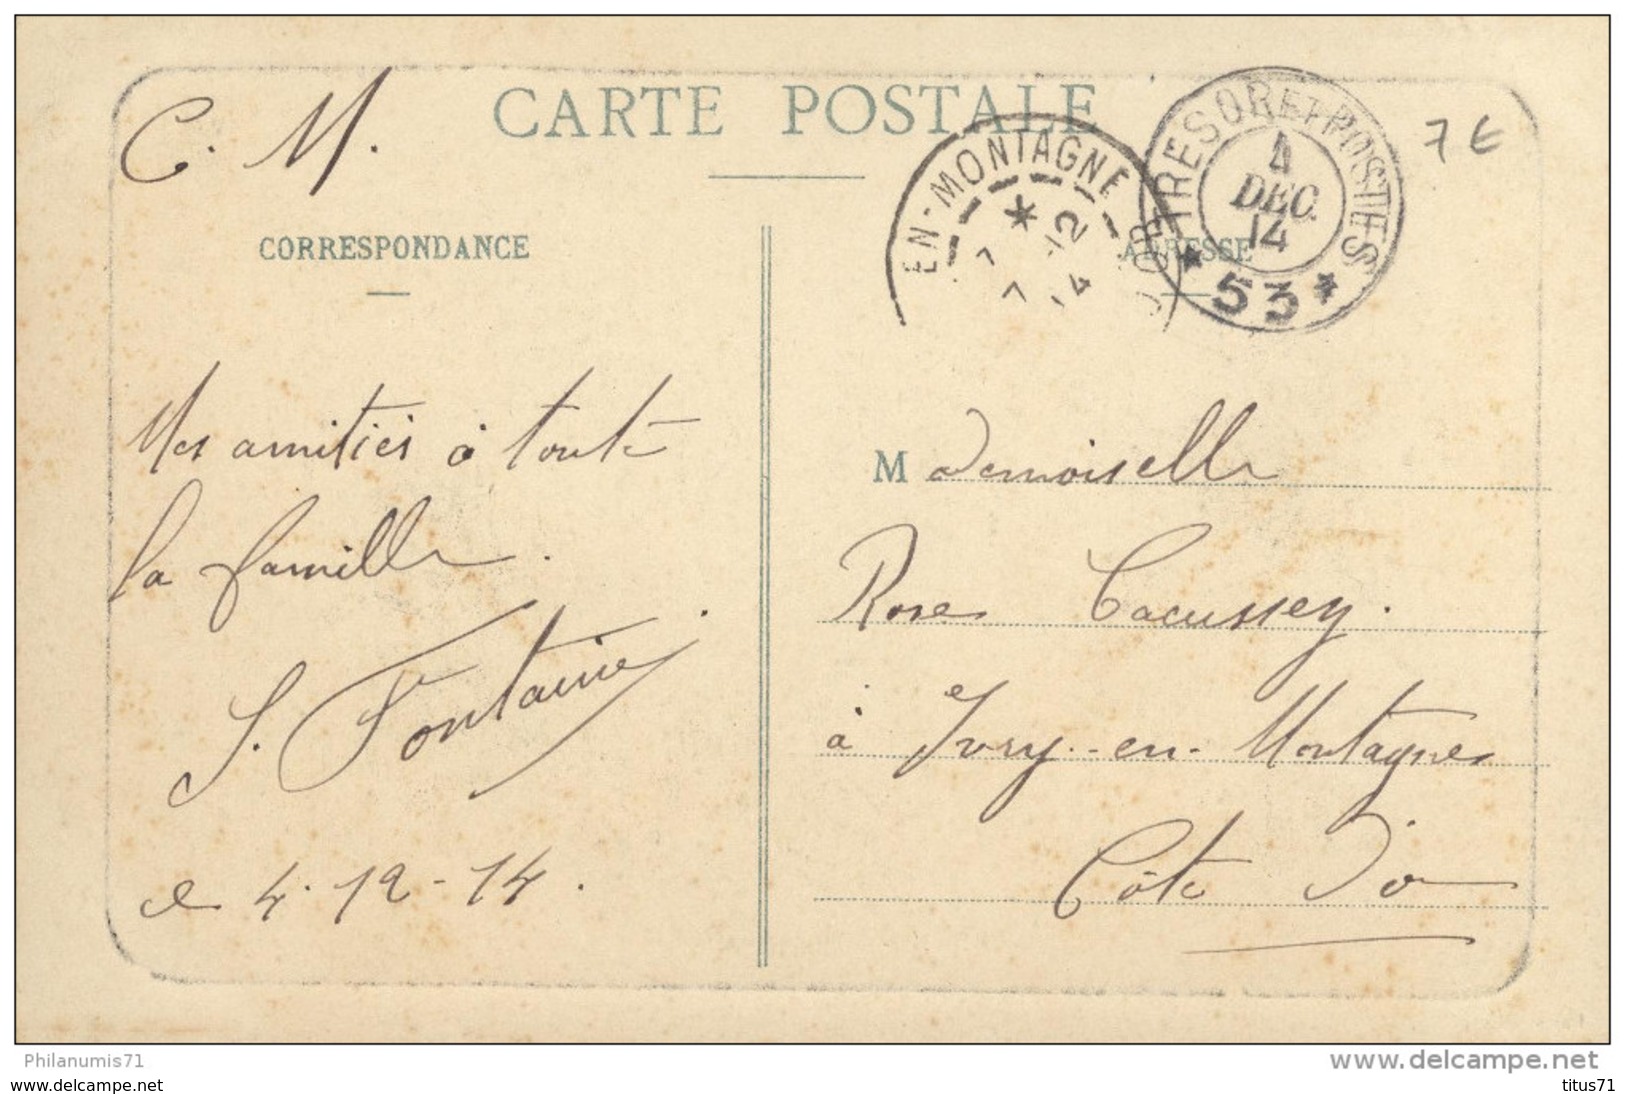 C. M.
CARTE POSTALE
7 €
EN-MONTAGNE
7 12
7 14
D'OR
TRESOR ET POSTES
4
DEC.
14
* 53 *
CORRESPONDANCE
ADRESSE
Mes amitiés à toute
la famille.
S. Fontaine
le 4-12-14.
Mademoiselle
Rose Cacussey.
à Ivry-en-Montagne
Côte d'or
Philanumis71
www.delcampe.net
www.delcampe.net
titus71